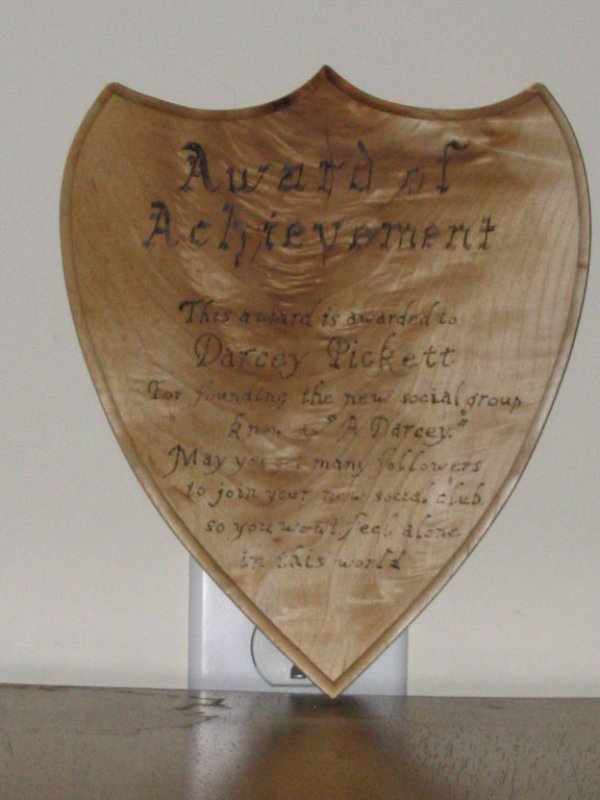 Award of
Achievement
This award is awarded to
Darcey Pickett
For founding the new social group
know as "A Darcey."
May you get many followers
to join your new social club,
so you wont feel alone
in this world